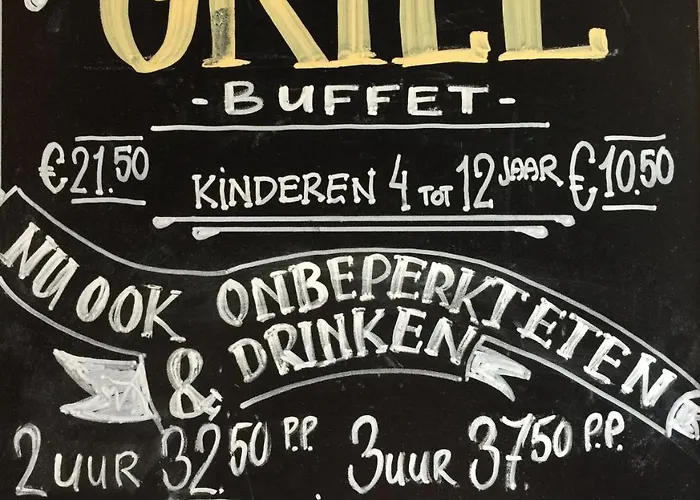 GRILL
-BUFFET-
€21.50 KINDEREN 4 TOT 12 JAAR €10.50
NU OOK ONBEPERKT ETEN
& DRINKEN
2 UUR 32.50 P.P. 3 UUR 37.50 P.P.